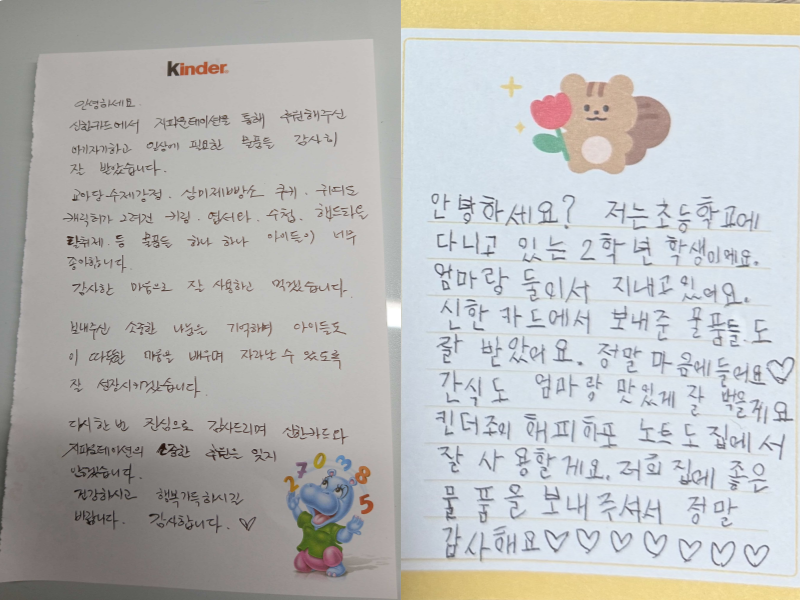 Kinder
안녕하세요.
신한카드에서 지파운데이션을 통해 후원해주신
아기자기하고 일상에 필요한 물품들 감사히
잘 받았습니다.
수제강정. 쿠키. 귀여운
캐릭터가 그려진 키링. 엽서. 수첩. 핸드타올
탈취제. 등 물품들 하나 하나 아이들이 너무
좋아합니다.
감사한 마음으로 잘 사용하고 먹겠습니다.
보내주신 소중한 나눔은 기억하며 아이들도
이 따뜻한 마음을 배우며 자라날 수 있도록
잘 성장시키겠습니다.
다시한번 진심으로 감사드리며 신한카드와
지파운데이션의 소중한 후원은 잊지
않겠습니다.
건강하시고 행복가득하시길
바랍니다. 감사합니다. ♡
2 7 0 3 8 5
안녕하세요? 저는초등학교에
다니고 있는 2학년 학생이에요.
엄마랑 둘이서 지내고있어요.
신한 카드에서 보내준 물품들도
잘 받았어요. 정말 마음에들어요♡
간식도 엄마랑 맛있게 잘 먹을게요
킨더조이 해피하포 노트도집에서
잘 사용할게요. 저희 집에 좋은
물품을 보내주셔서 정말
감사해요♡♡♡♡♡♡♡